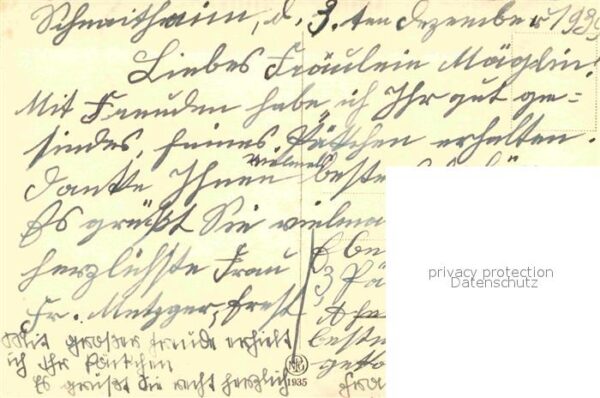 Schnaitheim, d. 3. ten Dezember 1939
Liebes Fräulein Mäglin!
Mit Freuden habe ich Ihr gut ge=
sindes, feines Päckchen erhalten.
vielmals
Danke Ihnen beste
Es grüßt Sie vielma
herzlichste Frau
Fr. Metzger,
3 Pä
beste
Fra
Mit großer Freude erhielt
ich Ihr Päckchen
Es grüßt Sie recht herzlich
1935
privacy protection
Datenschutz